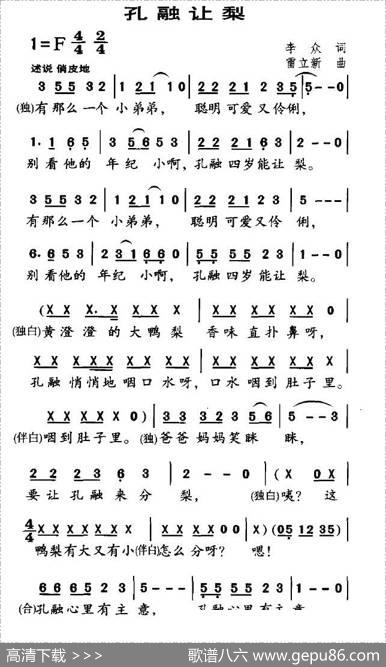 孔融让梨
1=F 4/4 2/4
李众 词
述说 俏皮地
雷立新 曲
3 55 5 32 | 1 21 10 | 22 21 23 5 | 5--0 |
(独)有那么一个 小弟弟， 聪明可爱又伶俐，
1. 1 6 5 | 3 5653 | 22 22 13 | 2--0 |
别看他的 年纪 小啊，孔融四岁能让 梨。
3 55 5 32 | 1 21 10 | 22 21 23 | 5--0 |
有那么一个 小弟弟， 聪明可爱又伶 俐，
6. 6 53 3 | 2 31 6 6 | 55 55 23 | 1--0 |
别看他的 年纪 小啊，孔融四岁能让 梨。
(X X X. X X X X | X X X X X X X 0
(独白)黄澄澄的大鸭梨 香味直扑鼻呀，
X X X X X X X X | X X X X X X X |
孔融悄悄地咽口水呀，口水咽到肚子里。
X X X X X 0) | 33 323 56 | 5--3) |
(伴白)咽到肚子里。(独)爸爸妈妈笑眯 眯，
2 2 23 6 3 | 2--0 | (X 0X |
要让孔融来分 梨， (独白)咦? 这
4/4 X X X X X X X | X X X 0 0 | X) (05 12 35) |
鸭梨有大又有小(伴白)怎么分呀? 嗯!
66 65 23 | 5--- | 55 55 23 | 1--0 |
(合)孔融心里有主 意， 孔融心里有主意
高清下载 >>>
歌谱八六 www.gepu86.com